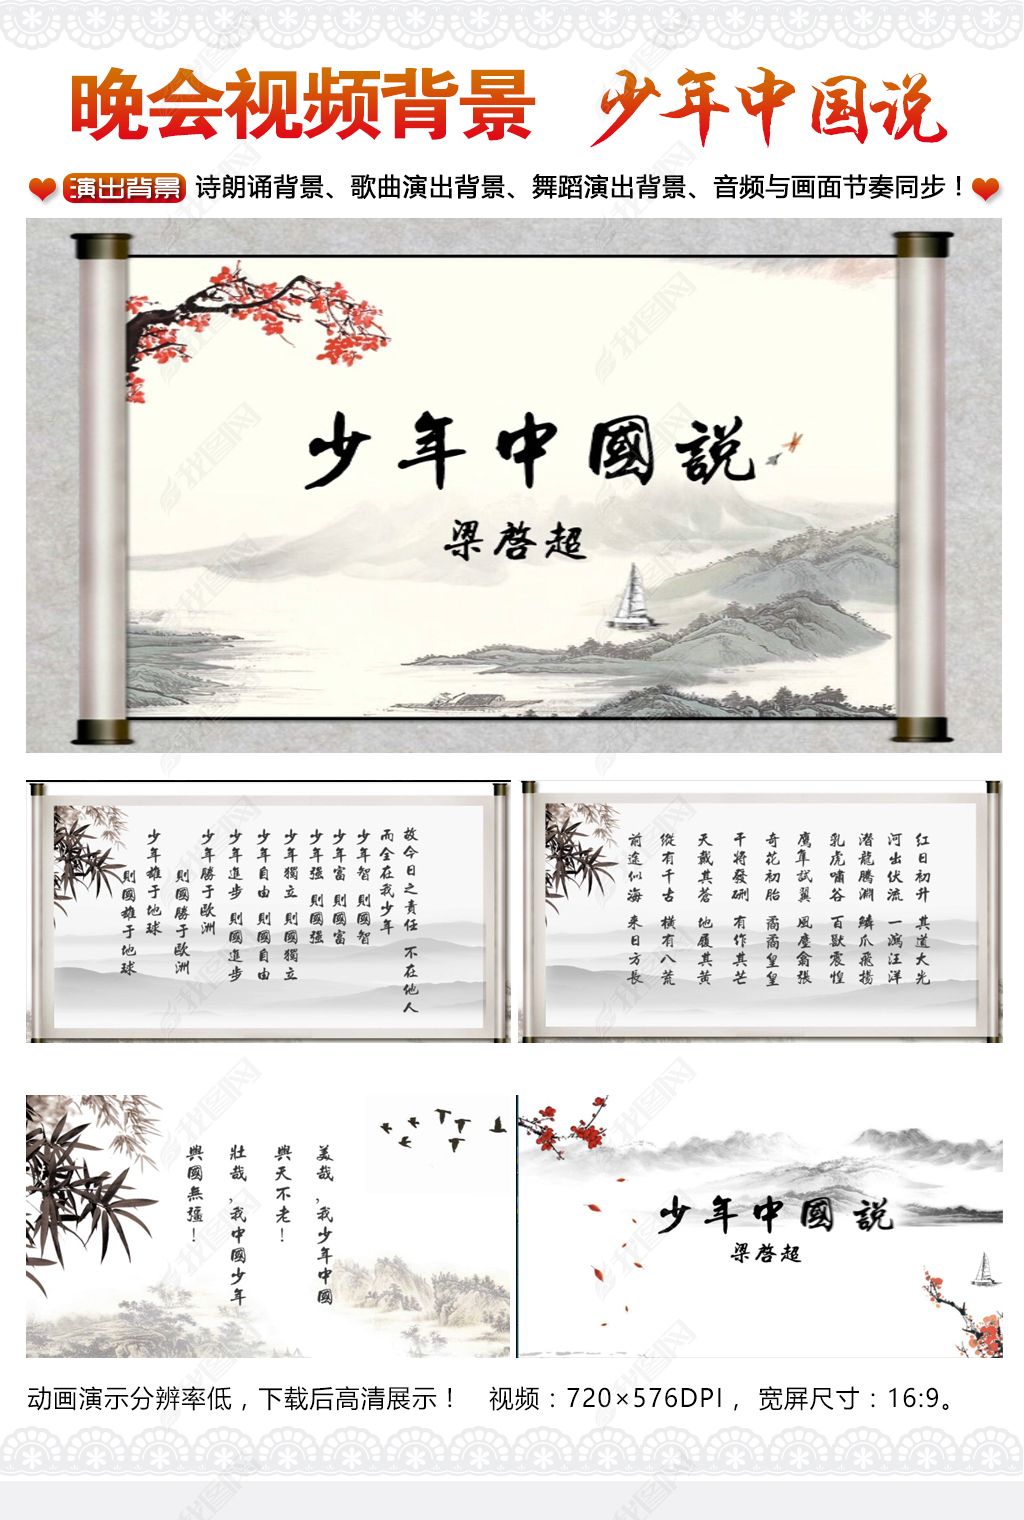 晚会视频背景 少年中国说
演出背景 诗朗诵背景、歌曲演出背景、舞蹈演出背景、音频与画面节奏同步！
少年中國説
梁啓超
故今日之責任 不在他人
而全在我少年
少年智 則國智
少年富 則國富
少年强 則國强
少年獨立 則國獨立
少年自由 則國自由
少年進步 則國進步
少年勝于歐洲
則國勝于歐洲
少年雄于地球
則國雄于地球
紅日初升 其道大光
河出伏流 一瀉汪洋
潜龍騰淵 鱗爪飛揚
乳虎嘯谷 百獸震惶
鷹隼試翼 風塵翕張
奇花初胎 矞矞皇皇
干將發硎 有作其芒
天戴其蒼 地履其黄
縱有千古 橫有八荒
前途似海 来日方長
美哉,我少年中國
與天不老!
壯哉,我中國少年
與國無疆!
少年中國説
梁啓超
动画演示分辨率低，下载后高清展示！ 视频：720×576DPI， 宽屏尺寸：16:9。
我图网